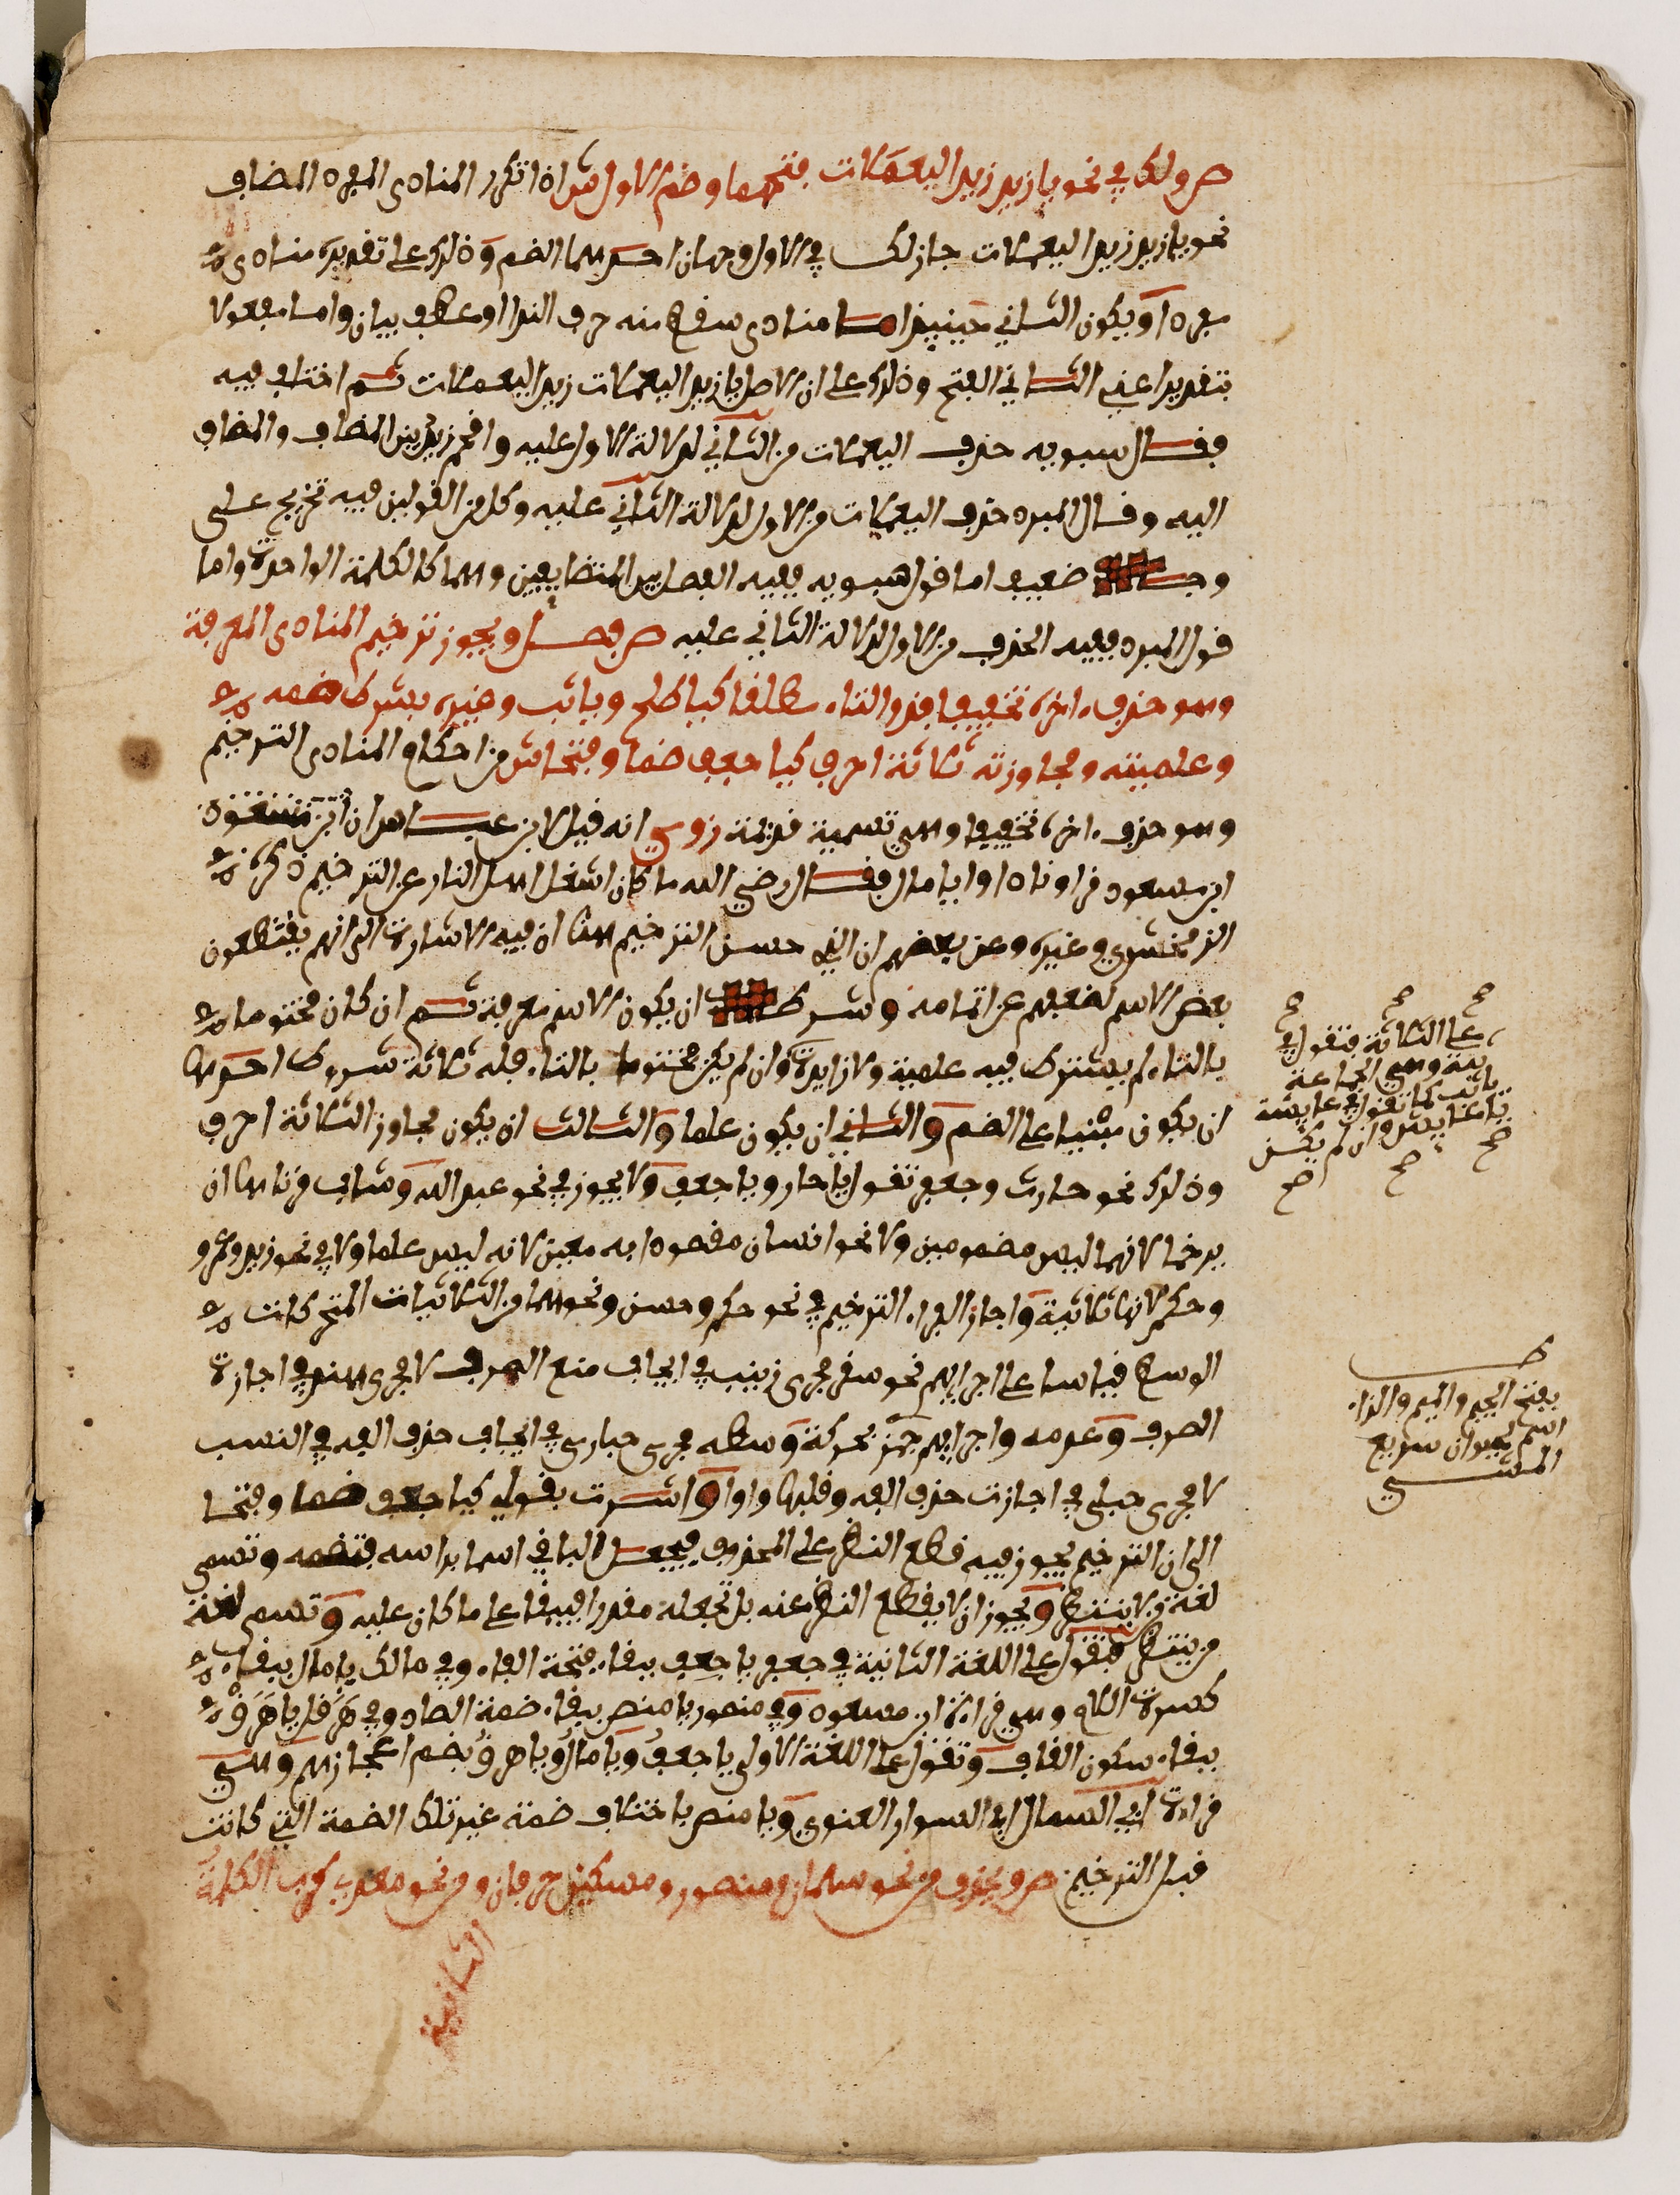 ص ولك في نحو يا زيد زيد اليعملات فتحهما وضم الاول ش اذا تكرر المنادى المفرد المضاف
نحو يا زيد زيد اليعملات جاز لك في الاول وجهان احدهما الضم وذلك على تقديره منادى
مفردا ويكون الثاني حينيذ اما منادى سقط منه حرف الندا او عطف بيان واما مفعولا
بتقدير اعني الثاني الفتح وذلك على ان الاصل يا زيد اليعملات زيد اليعملات ثم اختلف فيه
فقال سبويه حذف اليعملات من الثاني لدلالة الاول عليه واقحم زيد بين المضاف والمضاف
اليه وقال المبرد حذف اليعملات من الاول لدلالة الثاني عليه وكل من القولين فيه تخريج على
وجه ضعيف اما قول سبويه ففيه الفصل بين المتضايفين وهما كالكلمة الواحدة واما
قول المبرد ففيه الحذف من الاول لدلالة الثاني عليه ص فصل ويجوز ترخيم المنادى المعرفة
وهو حذف ءاخره تخفيفا فذو التاء مطلقا كيا طلح ويا ثب وغيره بشرط ضمه
وعلميته ومجاوزته ثلاثة احرف كيا جعف ضما وفتحا ش من احكام المنادى الترخيم
وهو حذف ءاخره تخفيفا وهي تسمية قديمة روي انه قيل لابن عباس ان ابن مسعود
ابن مسعود قرا ونادوا يا مال فقال رضي الله ما كان اشغل اهل النار عن الترخيم ذكره
الزمخشري وغيره وعن بعضهم ان الذي حسن الترخيم هنا ان فيه الاشارة الى انهم يقتطعون
بعض الاسم لضعفهم عن اتمامه وشرطه ان يكون الاسم معرفة ثم ان كان مختوما
بالتاء لم يشترط فيه علمية ولا زايدة وان لم يكن مختوما بالتاء فله ثلاثة شروط احدها
ان يكون مبنيا على الضم والثاني ان يكون علما والثالث ان يكون مجاوز الثلاثة احرف
وذلك نحو حارث وجعفر تقول يا حار ويا جعف ولا يجوز في نحو عبد الله وشاب قرناها ان
يرخما لانهما ليس مضمومين ولا نحو انسان مقصودا به معين لانه ليس علما ولا في نحو زيد وعمرو
وحكم لانها ثلاثية واجاز الفراء الترخيم في نحو حكم وحسن ونحوهما من الثلاثيات المتحركات
الوسط قياسا على اجرايهم نحو سقر مجرى زينب في ايجاب منع الصرف لا مجرى هند في اجازة
الصرف وعدمه واجرايهم جمز بحركة وسطه مجرى حبارى في ايجاب حذف الفه في النسب
لا مجرى حبلى في اجازت حذف الفه وقلبها واوا واشرت بقولي كيا جعف ضما وفتحا
الى ان الترخيم يجوز فيه قطع النظر على المحذوف فيجعل الباقي اسما براسه فتضمه وتسمى
لغة من لا ينتظر ويجوز ان لا يقطع النظر عنه بل تجعله مقدرا فيبقا على ما كان عليه وتسمى لغة
من ينتظر فتقول على اللغة الثانية في جعفر يا جعف ببقاء فتحة الفاء وفي مالك يا مال ببقاء
كسرة اللام وهي قراءة ابن مسعود وفي منصور يا منص ببقاء ضمة الصاد وفي هرقل يا هرق
ببقاء سكون القاف وتقول على اللغة الاولى يا جعف ويا مال ويا هرق بضم اعجازهم وهي
قراءة ابي السمال ابي السوار الغنوي ويا منص باختلاف ضمة غير تلك الضمة التي كانت
قبل الترخيم ص ويحذف من نحو سلمان ومنصور ومسكين حرفان ومن نحو معدي كرب الكلمة
الثانية
صح صح صح
على الثلاثة فتقول في
ثبة وهي الجماعة
يا ثب كما تقول في عايشة
يا عايش وان لم يكن
صح صح صح
ط
بفتح الجيم والميم والزاء
اسم لحيوان سريع
المشي